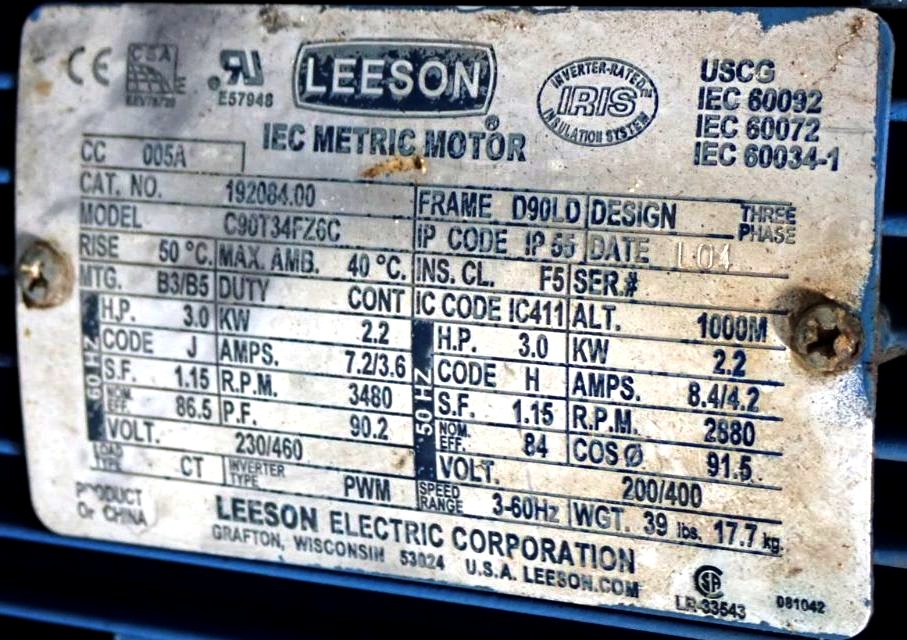 CE CSA UR LEESON INVERTER-RATED IRIS INSULATION SYSTEM USCG
E57948 IEC 60092
IEC METRIC MOTOR IEC 60072
IEC 60034-1
CC 005A
CAT. NO. 192084.00 FRAME D90LD DESIGN THREE PHASE
MODEL C90T34FZ6C IP CODE IP 55 DATE L04
RISE 50 °C. MAX. AMB. 40 °C. INS. CL. F5 SER.#
MTG. B3/B5 DUTY CONT IC CODE IC411 ALT. 1000M
60 HZ H.P. 3.0 KW 2.2 50 HZ H.P. 3.0 KW 2.2
CODE J AMPS. 7.2/3.6 CODE H AMPS. 8.4/4.2
S.F. 1.15 R.P.M. 3480 S.F. 1.15 R.P.M. 2880
NOM. EFF. 86.5 P.F. 90.2 NOM. EFF. 84 COS Ø 91.5
VOLT. 230/460 VOLT. 200/400
LOAD TYPE CT INVERTER TYPE PWM SPEED RANGE 3-60Hz WGT. 39 lbs. 17.7 kg.
PRODUCT OF CHINA LEESON ELECTRIC CORPORATION
GRAFTON, WISCONSIN 53024 U.S.A. LEESON.COM
LR-33543 081042